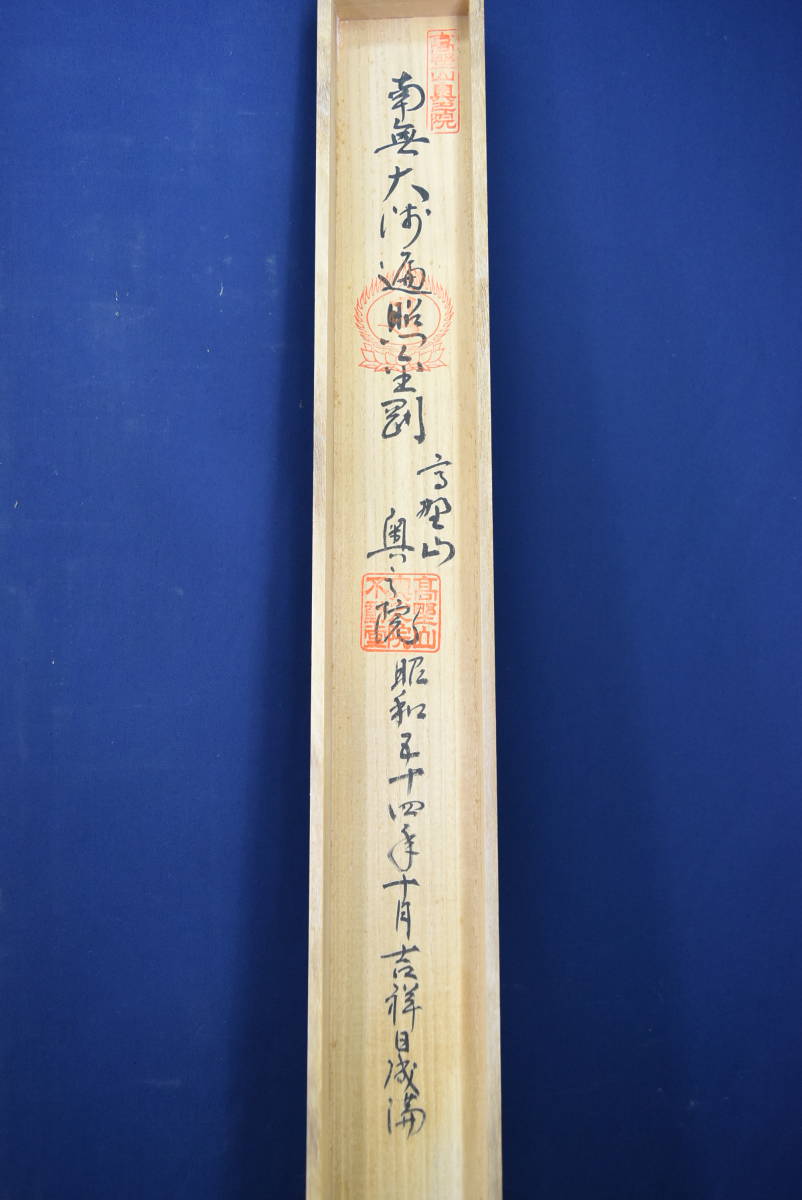 南無大師遍照金剛
高野山
奥之院
昭和五十四年十月吉祥日成満
高野山奥之院